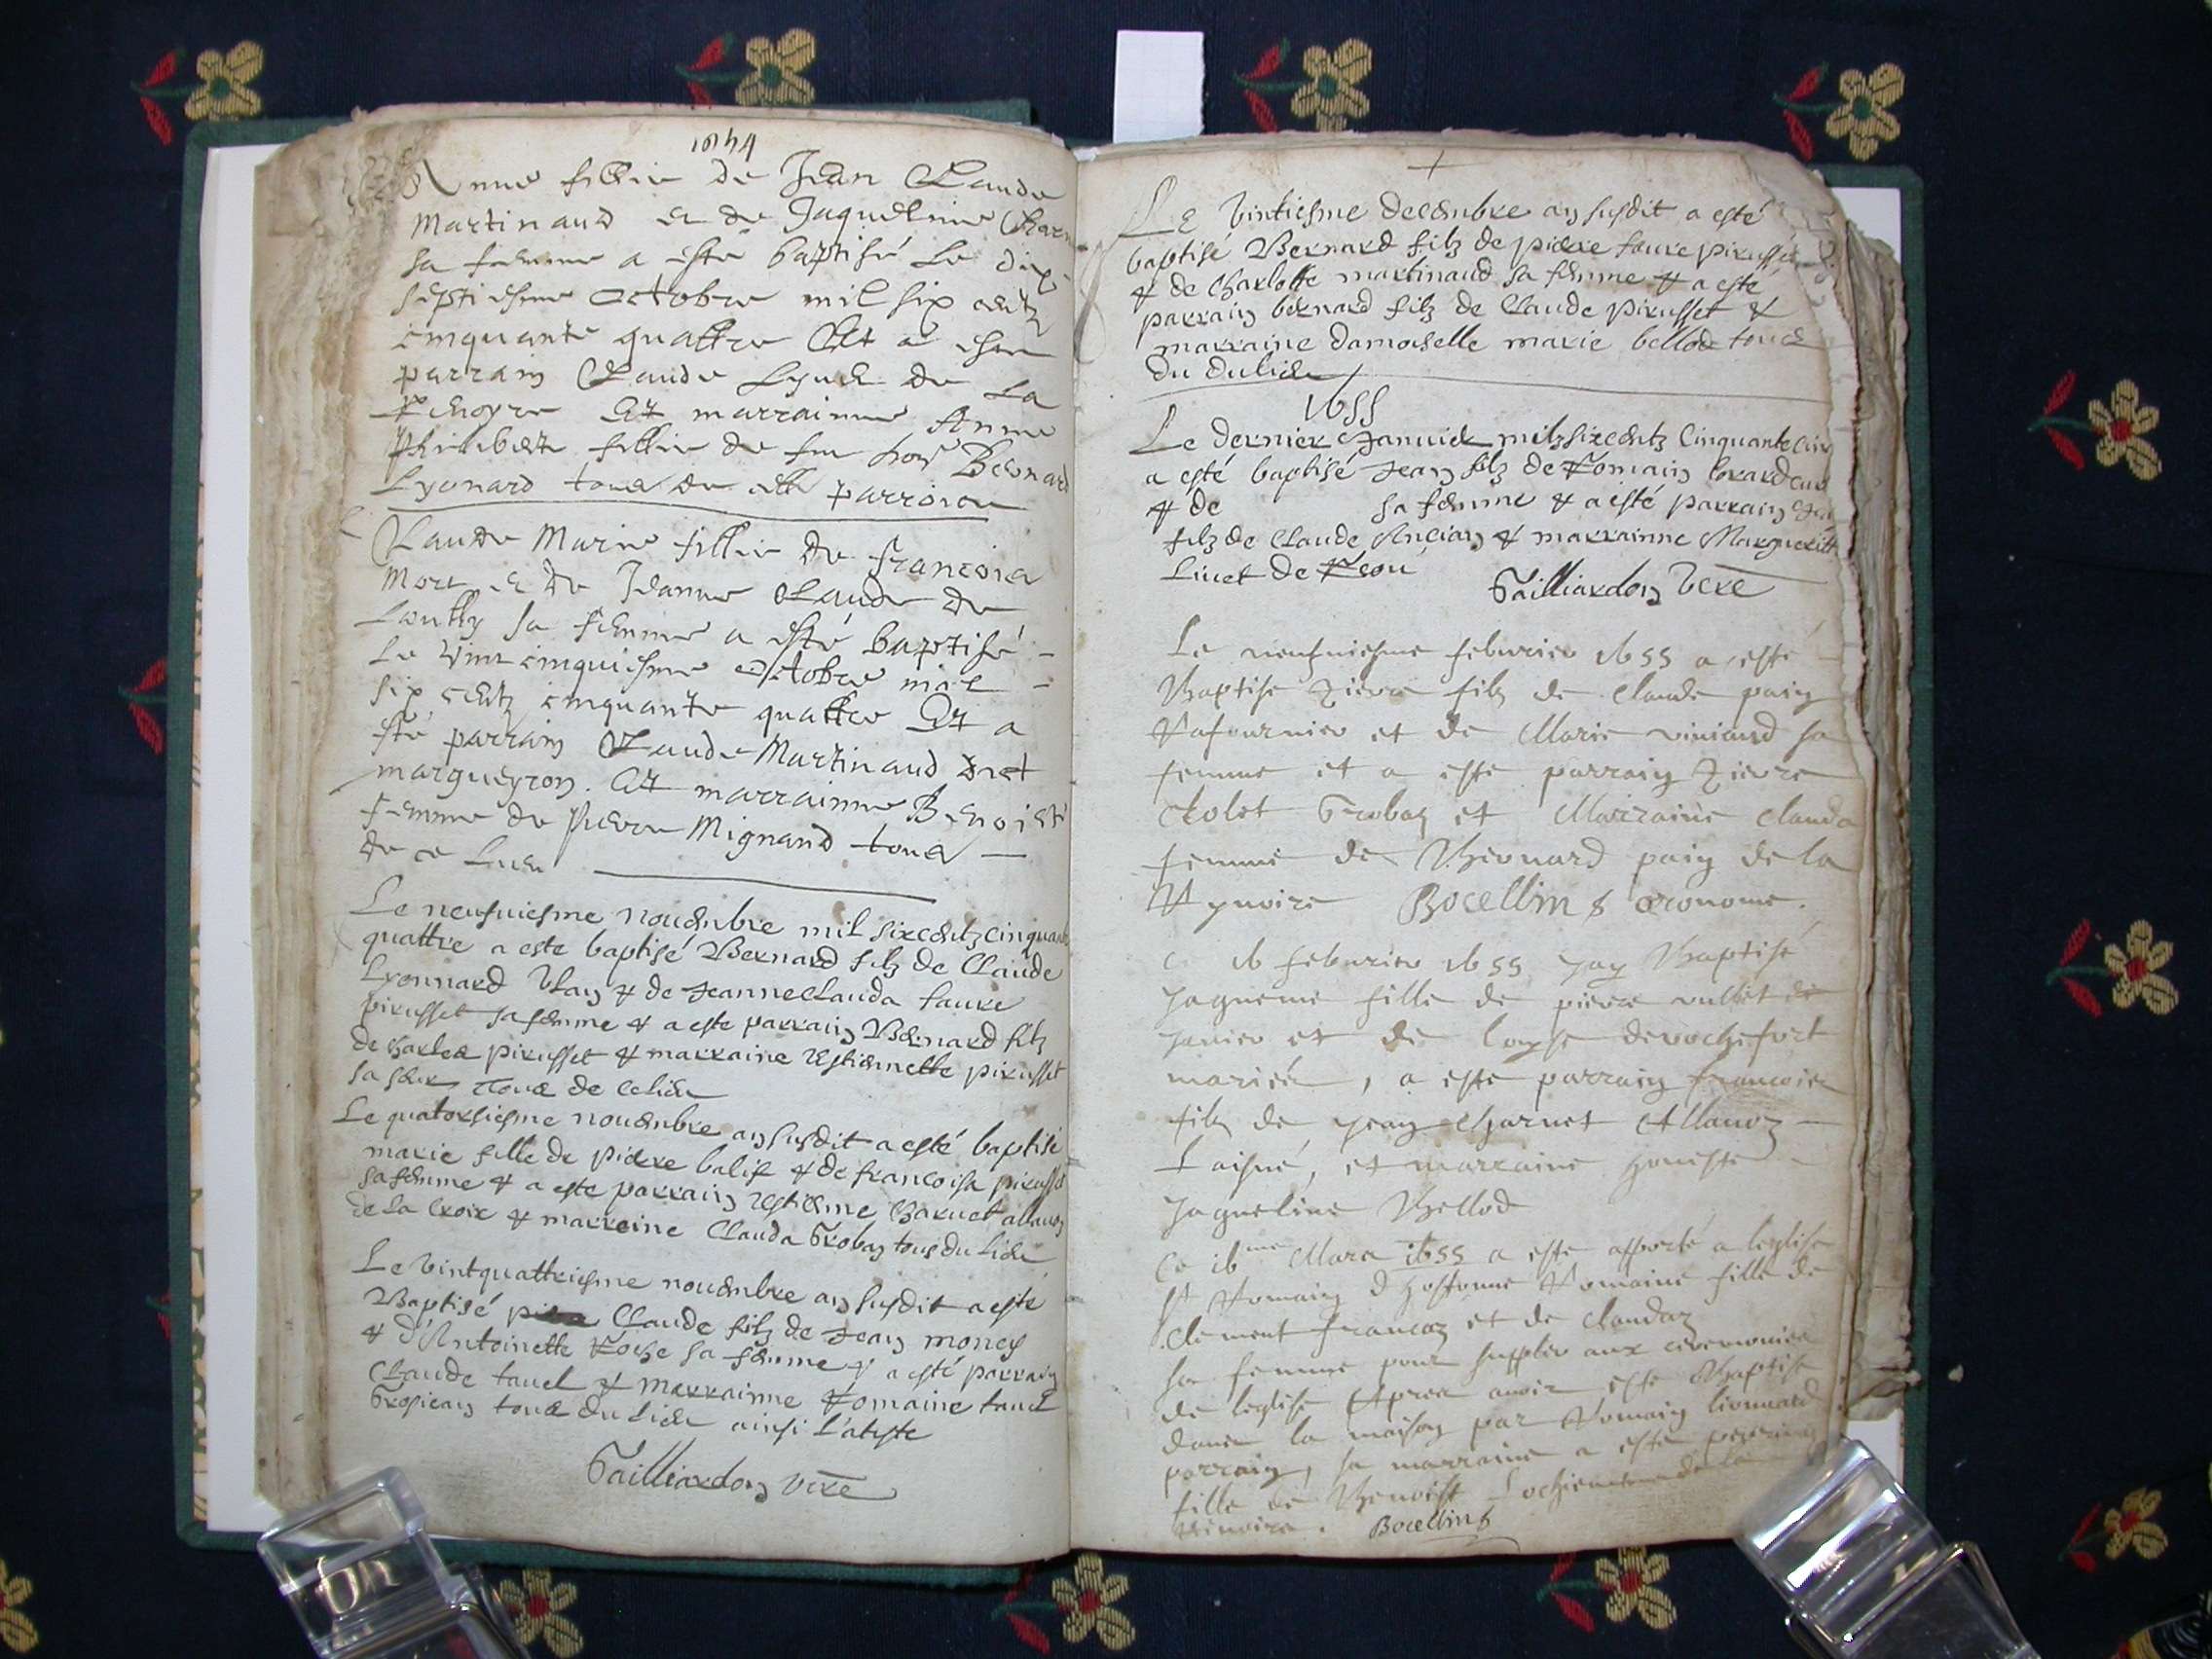 1654
Anne fillie de Jean Claude
Martinaud et de Jaquelinne
sa femme a esté baptisé le dix
septiesme octobre mil six centz
cinquante quattre Et a esté
parrain Claude de la
Et marrainne Anne
fillie de feu Bernard
Lyonard tous de parroice
Claude Marie fillie de francois
Mort et de Jeanne Claude de
sa femme a esté baptisé
le vint cinquiesme octobre mil
six centz cinquante quattre Et a
sté parrain Claude Martinaud
margueyron. Et marrainne Benoiste
femme de Pierre Mignand tous
de ce lieu
Le neufuiesme nouembre mil sixcentz cinquante
quattre a este baptisé Bernard filz de Claude
Lyonnard & de Jeanneclauda faure
pirusset sa femme & a este parrain Bernard filz
de Charles pirusset & marraine Estiennette pirusset
sa sœur tous de ce lieu
Le quatorsiesme nouembre an susdit a esté baptisé
marie fille de pierre balif & de francoisa pirusset
sa femme & a este parrain Estienne Charuet
de la Croix & marreine Clauda Troban tous du lieu
Le vintquattriesme nouembre an susdit a esté
Baptisé Claude filz de Jean
& d'Antoinette Roche sa femme & a esté parrain
Claude tauel & marrainne Romaine tauel
tous du lieu ainsi l'ateste
Tailliardon vere
Le vintiesme decembre an susdit a esté
baptisé Bernard filz de pierre faure pirusset
& de Charlotte martinaud sa femme & a esté
parrain bernard filz de Claude pirusset &
marraine damoiselle marie bellod tous
du dulieu
1655
Le dernier Januier milsixcentz Cinquantecinq
a esté baptisé Jean filz de Romain
& de sa femme & a esté parrain
filz de Claude Ancian & marrainne Marguerite
Liuet de
Tailliardon vere
Le neufuiesme feburier 1655 a esté
Baptise pierre filz de Claude pain
Rafournier et de Marie viuiand sa
femme et a este parrain pierre
Troban et Marraine Clauda
femme de Bernard pain de la
Bocellin œconome.
16 feburier 1655 Jay Baptisé
Jaqueme fille de pierre vulliet de
Janier et de Loyse derochefort
mariés, a este parrain francois
filz de Jean Charuet Allauoz
Laisné, et marraine honeste
Jaqueline Bellod
Ce 16me Mars 1655 a este apporté a leglise
St Romain d'hostonne Romaine fille de
Clement francoz et de Claudaz
sa femme pour supplir aux ceremonies
de leglise Apres auoir este Baptise
dans la maison par Romain lionnard
parrain, sa marraine a este
fille de Benoist
Bocellin